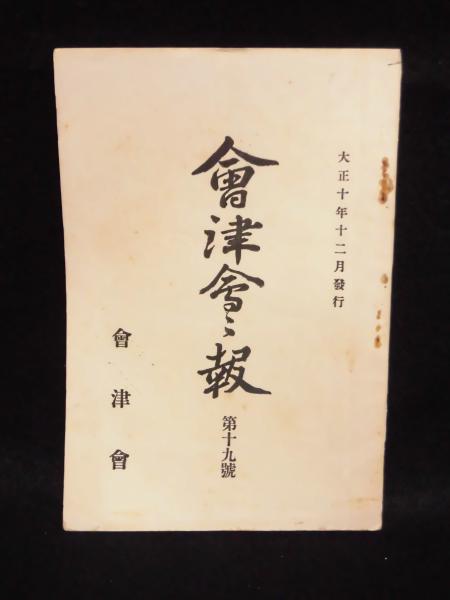 大正十年十二月發行
會津會〻報
第十九號
會津會